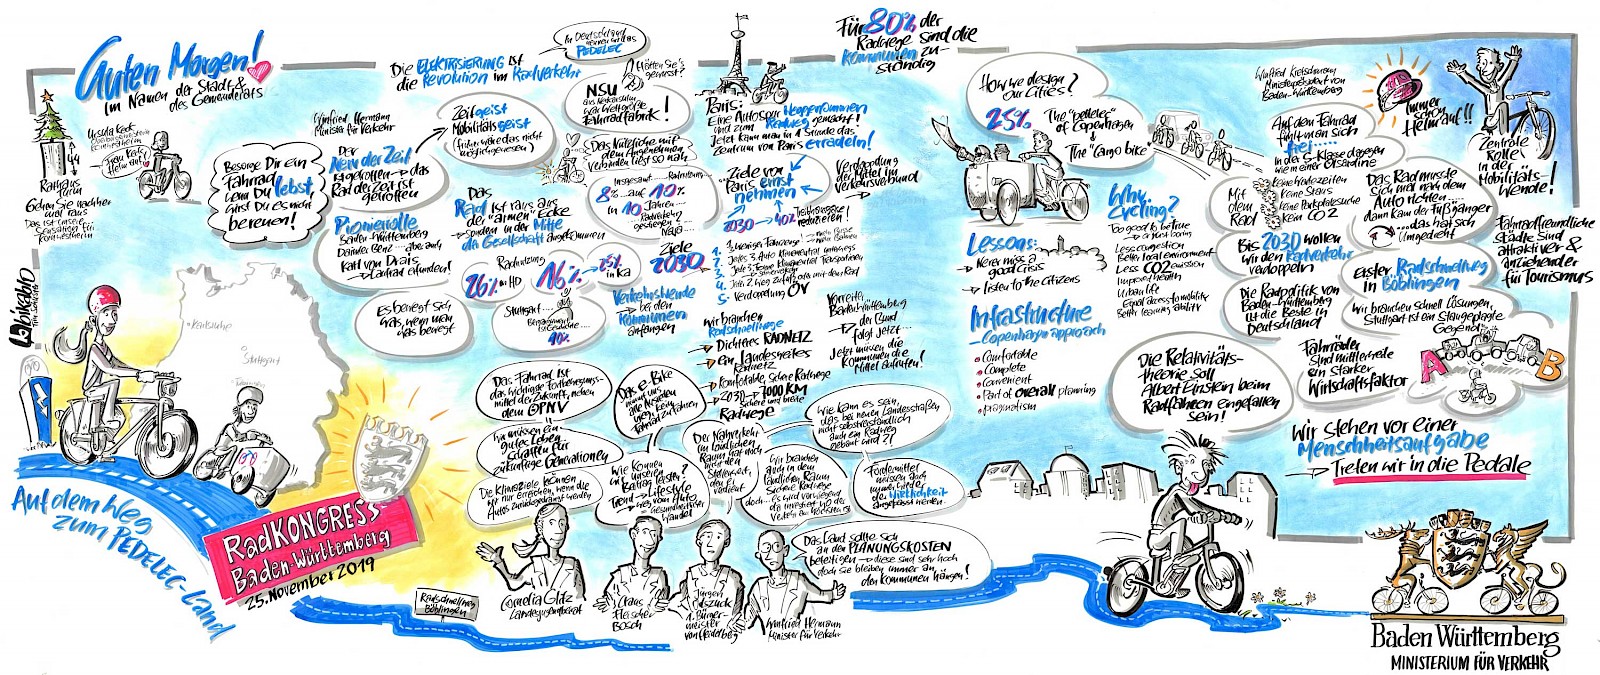 Guten Morgen!
Im Namen der Stadt &
des Gemeinderats
Rathaus
Turm
Gehen Sie nachher
mal raus
Besorge Dir ein
Fahrrad
wenn Du lebst,
wirst Du es nicht
bereuen!
Winfried Hermann
Minister für Verkehr
Der
Nerv der Zeit
ist getroffen → das
Rad der Zeit ist
getroffen
Pionierrolle
Baden-Württemberg
Karl von Drais
→ Laufrad erfunden!
Es bewegt sich
was, wenn man
was bewegt
Die ELEKTRISIERUNG ist
die Revolution im Radverkehr
In Deutschland
PEDELEC
Zeitgeist
Mobilitätsgeist
(früher wäre das nicht
möglich gewesen)
Hätten Sie's
gewusst?
NSU
aus Neckarsulm
war Weltgrößte
Fahrradfabrik!
Das Nützliche mit
dem Angenehmen
verbinden liegt so nah
Das
Rad ist raus aus
der "armen" Ecke
→ sondern in der Mitte
der Gesellschaft angekommen
Insgesamt
8% auf 10%
in 10 Jahren
Radnutzung
26% in HD
16%
25%
in KA
Stuttgart
10%
Ziele
2030
Verkehrswende
bei den
Kommunen
anfangen
Paris:
Eine Autospur Weggenommen
und zum Radweg gemacht!
Jetzt kann man in 1 Stunde das
Zentrum von Paris erradeln!
Ziele von
Paris ernst
nehmen
2030 → 40%
Treibhausgase
reduzieren!
Verdopplung
der Mittel im
Verkehrsverbund
5. Verdopplung ÖV
Wir brauchen
Radschnellwege
→ Dichteres RADNETZ
→ ein Landesweites
Radnetz
→ Komfortable, sichere Radwege
→ 2030 → 7000 KM
sichere und breite
Radwege
Vorreiter
Baden-Württemberg
→ der Bund
folgt jetzt
Jetzt müssen die
Kommunen die
Mittel abrufen!
Für 80% der
Radwege sind die
Kommunen zu-
ständig
How we design
our Cities?
25%
The "petletec"
of Copenhagen
The "Cargo bike"
Lessons:
→ Never miss a
good crisis
→ Listen to the citizens
Why
cycling?
Too good to be true
→ almost boring
Less congestion
Better local environment
Less CO2 emission
Improve health
Urban life
Equal access to mobility
Better learning ability
Infrastructure
→ Copenhagen approach
• Comfortable
• Complete
• Convenient
• Part of overall planning
• pragmatism
Winfried Kretschmann
Ministerpräsident von
Baden-Württemberg
Auf dem Fahrrad
fühlt man sich
frei.....
in der S-Klasse dagegen
wie in einer Ölsardine
Mit
dem
Rad
keine Staus
keine Parkplatzsuche
kein CO2
Bis 2030 wollen
wir den Radverkehr
verdoppeln
Die Radpolitik von
Baden-Württemberg
ist die Beste in
Deutschland
Immer
schön
Helm auf!!
Zentrale
Rolle
in der
Mobilitäts-
Wende!
Das Rad musste
sich mal nach dem
Auto richten....
dann kam der Fußgänger
...das hat sich
umgedreht
Fahrradfreundliche
Städte sind
attraktiver &
anziehender
für Tourismus
erster Radschnellweg
in Böblingen
Wir brauchen schnell Lösungen,
Stuttgart ist ein staugeplagte
Gegend!
A
B
Fahrräder
sind mittlerweile
ein starker
Wirtschaftsfaktor
Die Relativitäts-
theorie soll
Albert Einstein beim
Radfahren eingefallen
sein!
Wir stehen vor einer
Menschheitsaufgabe
→ Treten wir in die Pedale
Karlsruhe
Stuttgart
Auf dem Weg
zum PEDELEC-Land
RadKONGRESS
Baden-Württemberg
25. November 2019
Das Fahrrad ist
das wichtigste Fortbewegungs-
mittel der Zukunft, neben
dem ÖPNV
Wir müssen ein
gutes Leben
schaffen für
zukünftige Generationen
Die Klimaziele können
wir nur erreichen, wenn die
Autos zurückgedrängt werden
Das e-Bike
Wie können
wir unseren
Beitrag leisten?
Trend → Lifestyle
→ weg vom Auto
Der Nahverkehr
im ländlichen
Raum hat noch
nicht den
Stellenwert,
den er
verdient
Wir brauchen
auch in dem
ländlichen Raum
sichere Radwege
Wie kann es sein,
dass bei neuen Landesstraßen
nicht selbstverständlich
auch ein Radweg
gebaut wird?!
Fördermittel
müssen auch
der Wirklichkeit
angepasst werden
Das Land sollte sich
an den PLANUNGSKOSTEN
beteiligen → diese sind sehr hoch
doch sie bleiben immer an
den Kommunen hängen!
Radschnellweg
Böblingen
Cornelia Glitz
Claus
Fleischer
Bosch
Jürgen
Odszuck
1. Bürger-
meister
von Heidelberg
Winfried Hermann
Minister für Verkehr
Baden Württemberg
MINISTERIUM FÜR VERKEHR